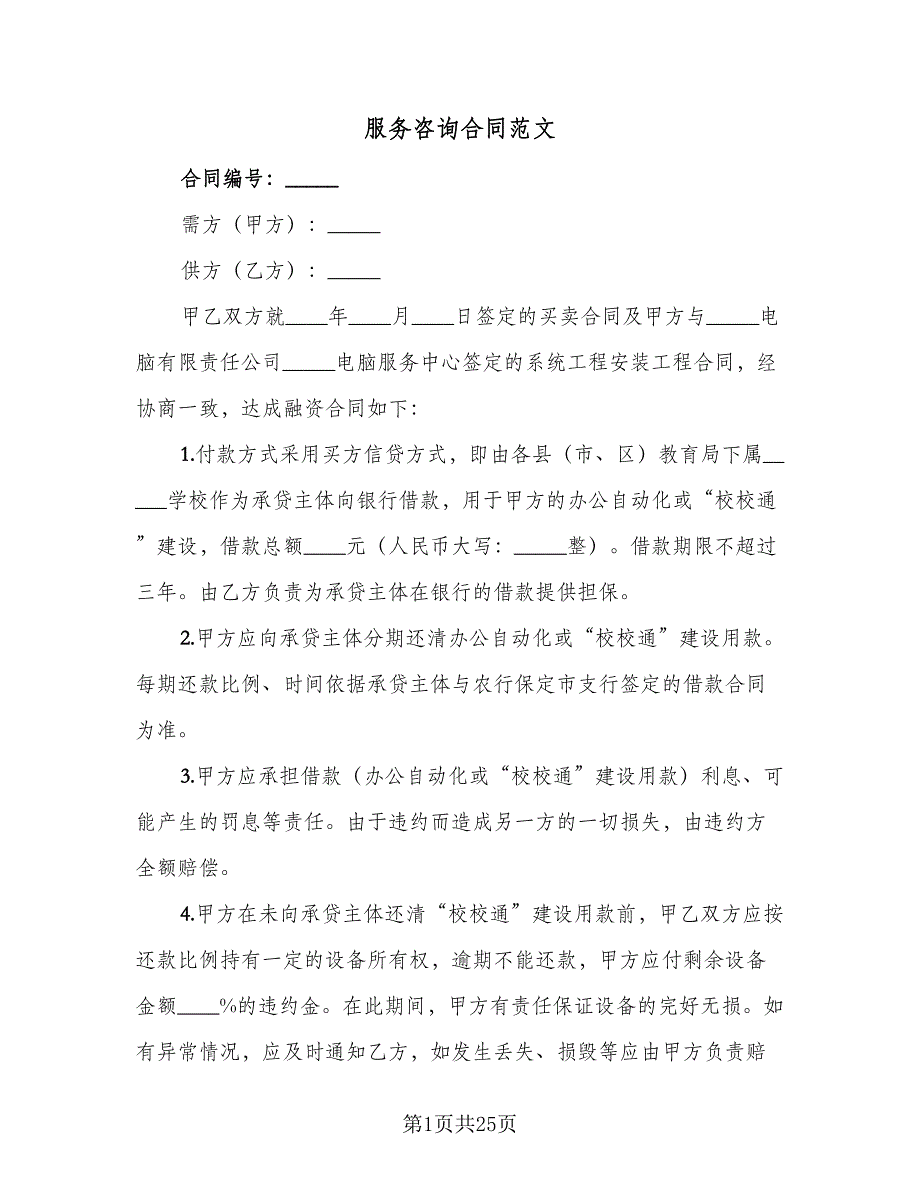 服务咨询合同范文
合同编号：_____
需方（甲方）：_____
供方（乙方）：_____
甲乙双方就____年____月____日签定的买卖合同及甲方与_____电
脑有限责任公司_____电脑服务中心签定的系统工程安装工程合同，经
协商一致，达成融资合同如下：
1.付款方式采用买方信贷方式，即由各县（市、区）教育局下属__
___学校作为承贷主体向银行借款，用于甲方的办公自动化或“校校通
”建设，借款总额____元（人民币大写：_____整）。借款期限不超过
三年。由乙方负责为承贷主体在银行的借款提供担保。
2.甲方应向承贷主体分期还清办公自动化或“校校通”建设用款。
每期还款比例、时间依据承贷主体与农行保定市支行签定的借款合同
为准。
3.甲方应承担借款（办公自动化或“校校通”建设用款）利息、可
能产生的罚息等责任。由于违约而造成另一方的一切损失，由违约方
全额赔偿。
4.甲方在未向承贷主体还清“校校通”建设用款前，甲乙双方应按
还款比例持有一定的设备所有权，逾期不能还款，甲方应付剩余设备
金额____%的违约金。在此期间，甲方有责任保证设备的完好无损。如
有异常情况，应及时通知乙方，如发生丢失、损毁等应由甲方负责赔
第1页共25页